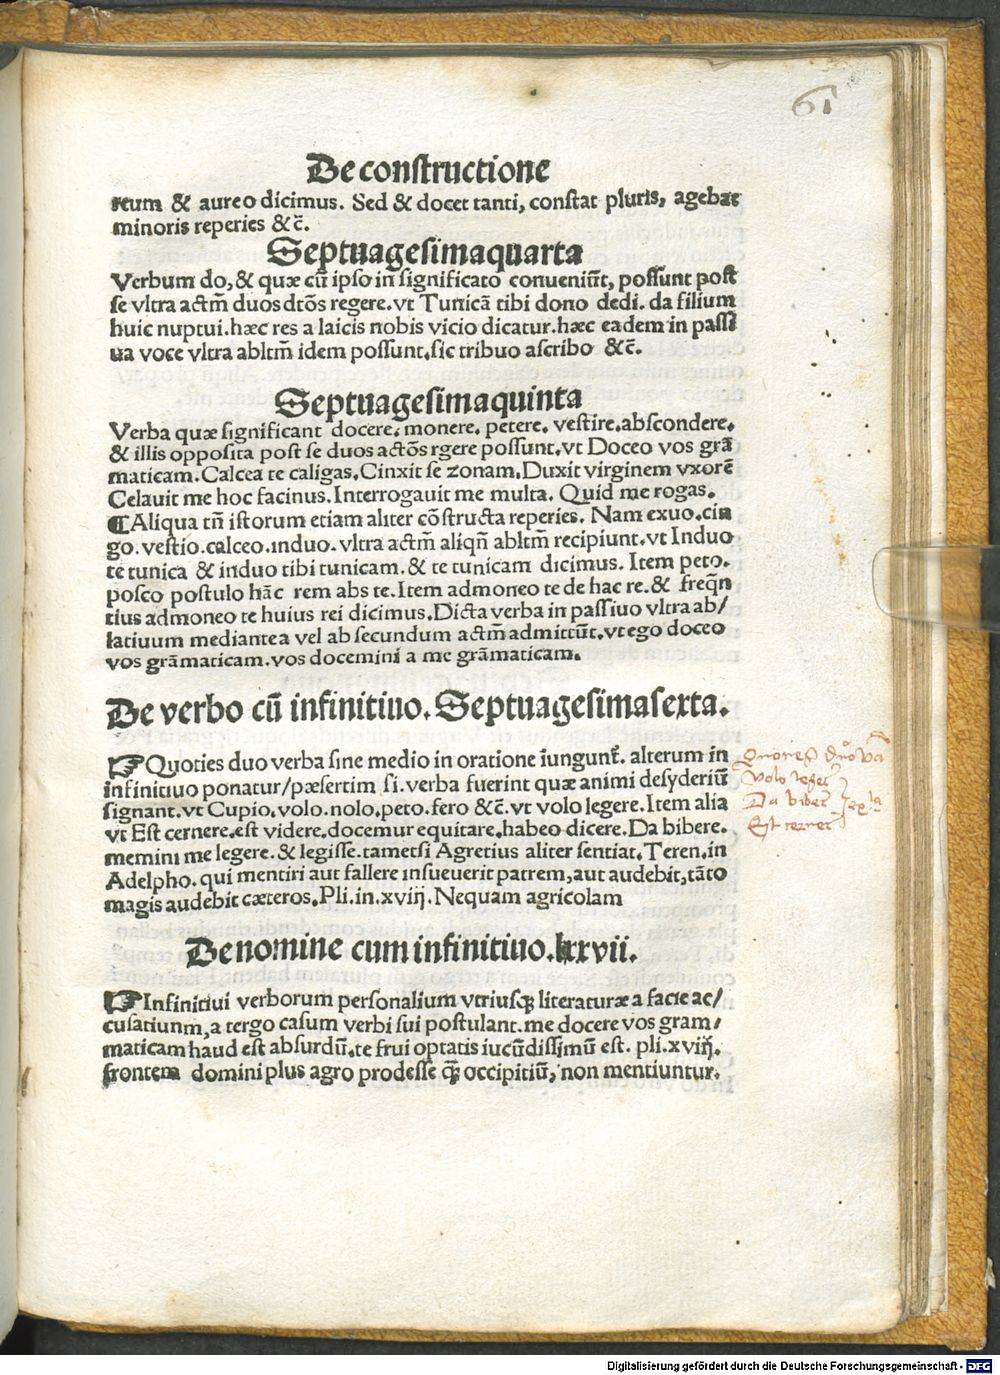 61
De constructione
reum & aureo dicimus. Sed & docet tanti, constat pluris, agebat
minoris reperies &c̄.
Septuagesimaquarta
Verbum do, & quæ cū ipso in significato conueniūt, possunt post
se vltra actm̄ duos dtōs regere. vt Tunicā tibi dono dedi. da filium
huic nuptui. hæc res a laicis nobis vicio dicatur. hæc eadem in passi
ua voce vltra abltm̄ idem possunt, sic tribuo ascribo &c̄.
Septuagesimaquinta
Verba quæ significant docere, monere, petere, vestire, abscondere,
& illis opposita post se duos actōs rgere possunt. vt Doceo vos grā
maticam. Calcea te caligas. Cinxit se zonam. Duxit virginem vxorē
Celauit me hoc facinus. Interrogauit me multa. Quid me rogas.
¶ Aliqua tn̄ istorum etiam aliter cōstructa reperies. Nam exuo. cin
go. vestio. calceo. induo. vltra actm̄ aliqn̄ abltm̄ recipiunt. vt Induo
te tunica & induo tibi tunicam. & te tunicam dicimus. Item peto.
posco postulo hāc rem abs te. Item admoneo te de hac re. & freqn̄
tius admoneo te huius rei dicimus. Dicta verba in passiuo vltra ab/
latiuum mediante a vel ab secundum actm̄ admittūt. vt ego doceo
vos grāmaticam. vos docemini a me grāmaticam.
De verbo cū infinitiuo. Septuagesimasexta.
☞ Quoties duo verba sine medio in oratione iunguntᷣ. alterum in
infinitiuo ponatur/ pæsertim si verba fuerint quæ animi desyderiū
signant. vt Cupio, volo. nolo, peto. fero &c̄. vt volo legere. Item alia
vt Est cernere. est videre, docemur equitare, habeo dicere. Da bibere.
memini me legere. & legisse. tametsi Agretius aliter sentiat. Teren. in
Adelpho. qui mentiri aut fallere insueuerit patrem, aut audebit, tāto
magis audebit cæteros. Pli. in. xviij. Nequam agricolam
volo leger
Da biber
Est cerner
De nomine cum infinitiuo. lxxvii.
☞ Infinitiui verborum personalium vtriusqꝫ literaturæ a facie ac/
cusatiunm, a tergo casum verbi sui postulant. me docere vos gram/
maticam haud est absurdū. te frui optatis iucūdissimū est. pli. xviij.
frontem domini plus agro prodesse qꝫ occipitiū, non mentiuntur.
Digitalisierung gefördert durch die Deutsche Forschungsgemeinschaft - DFG